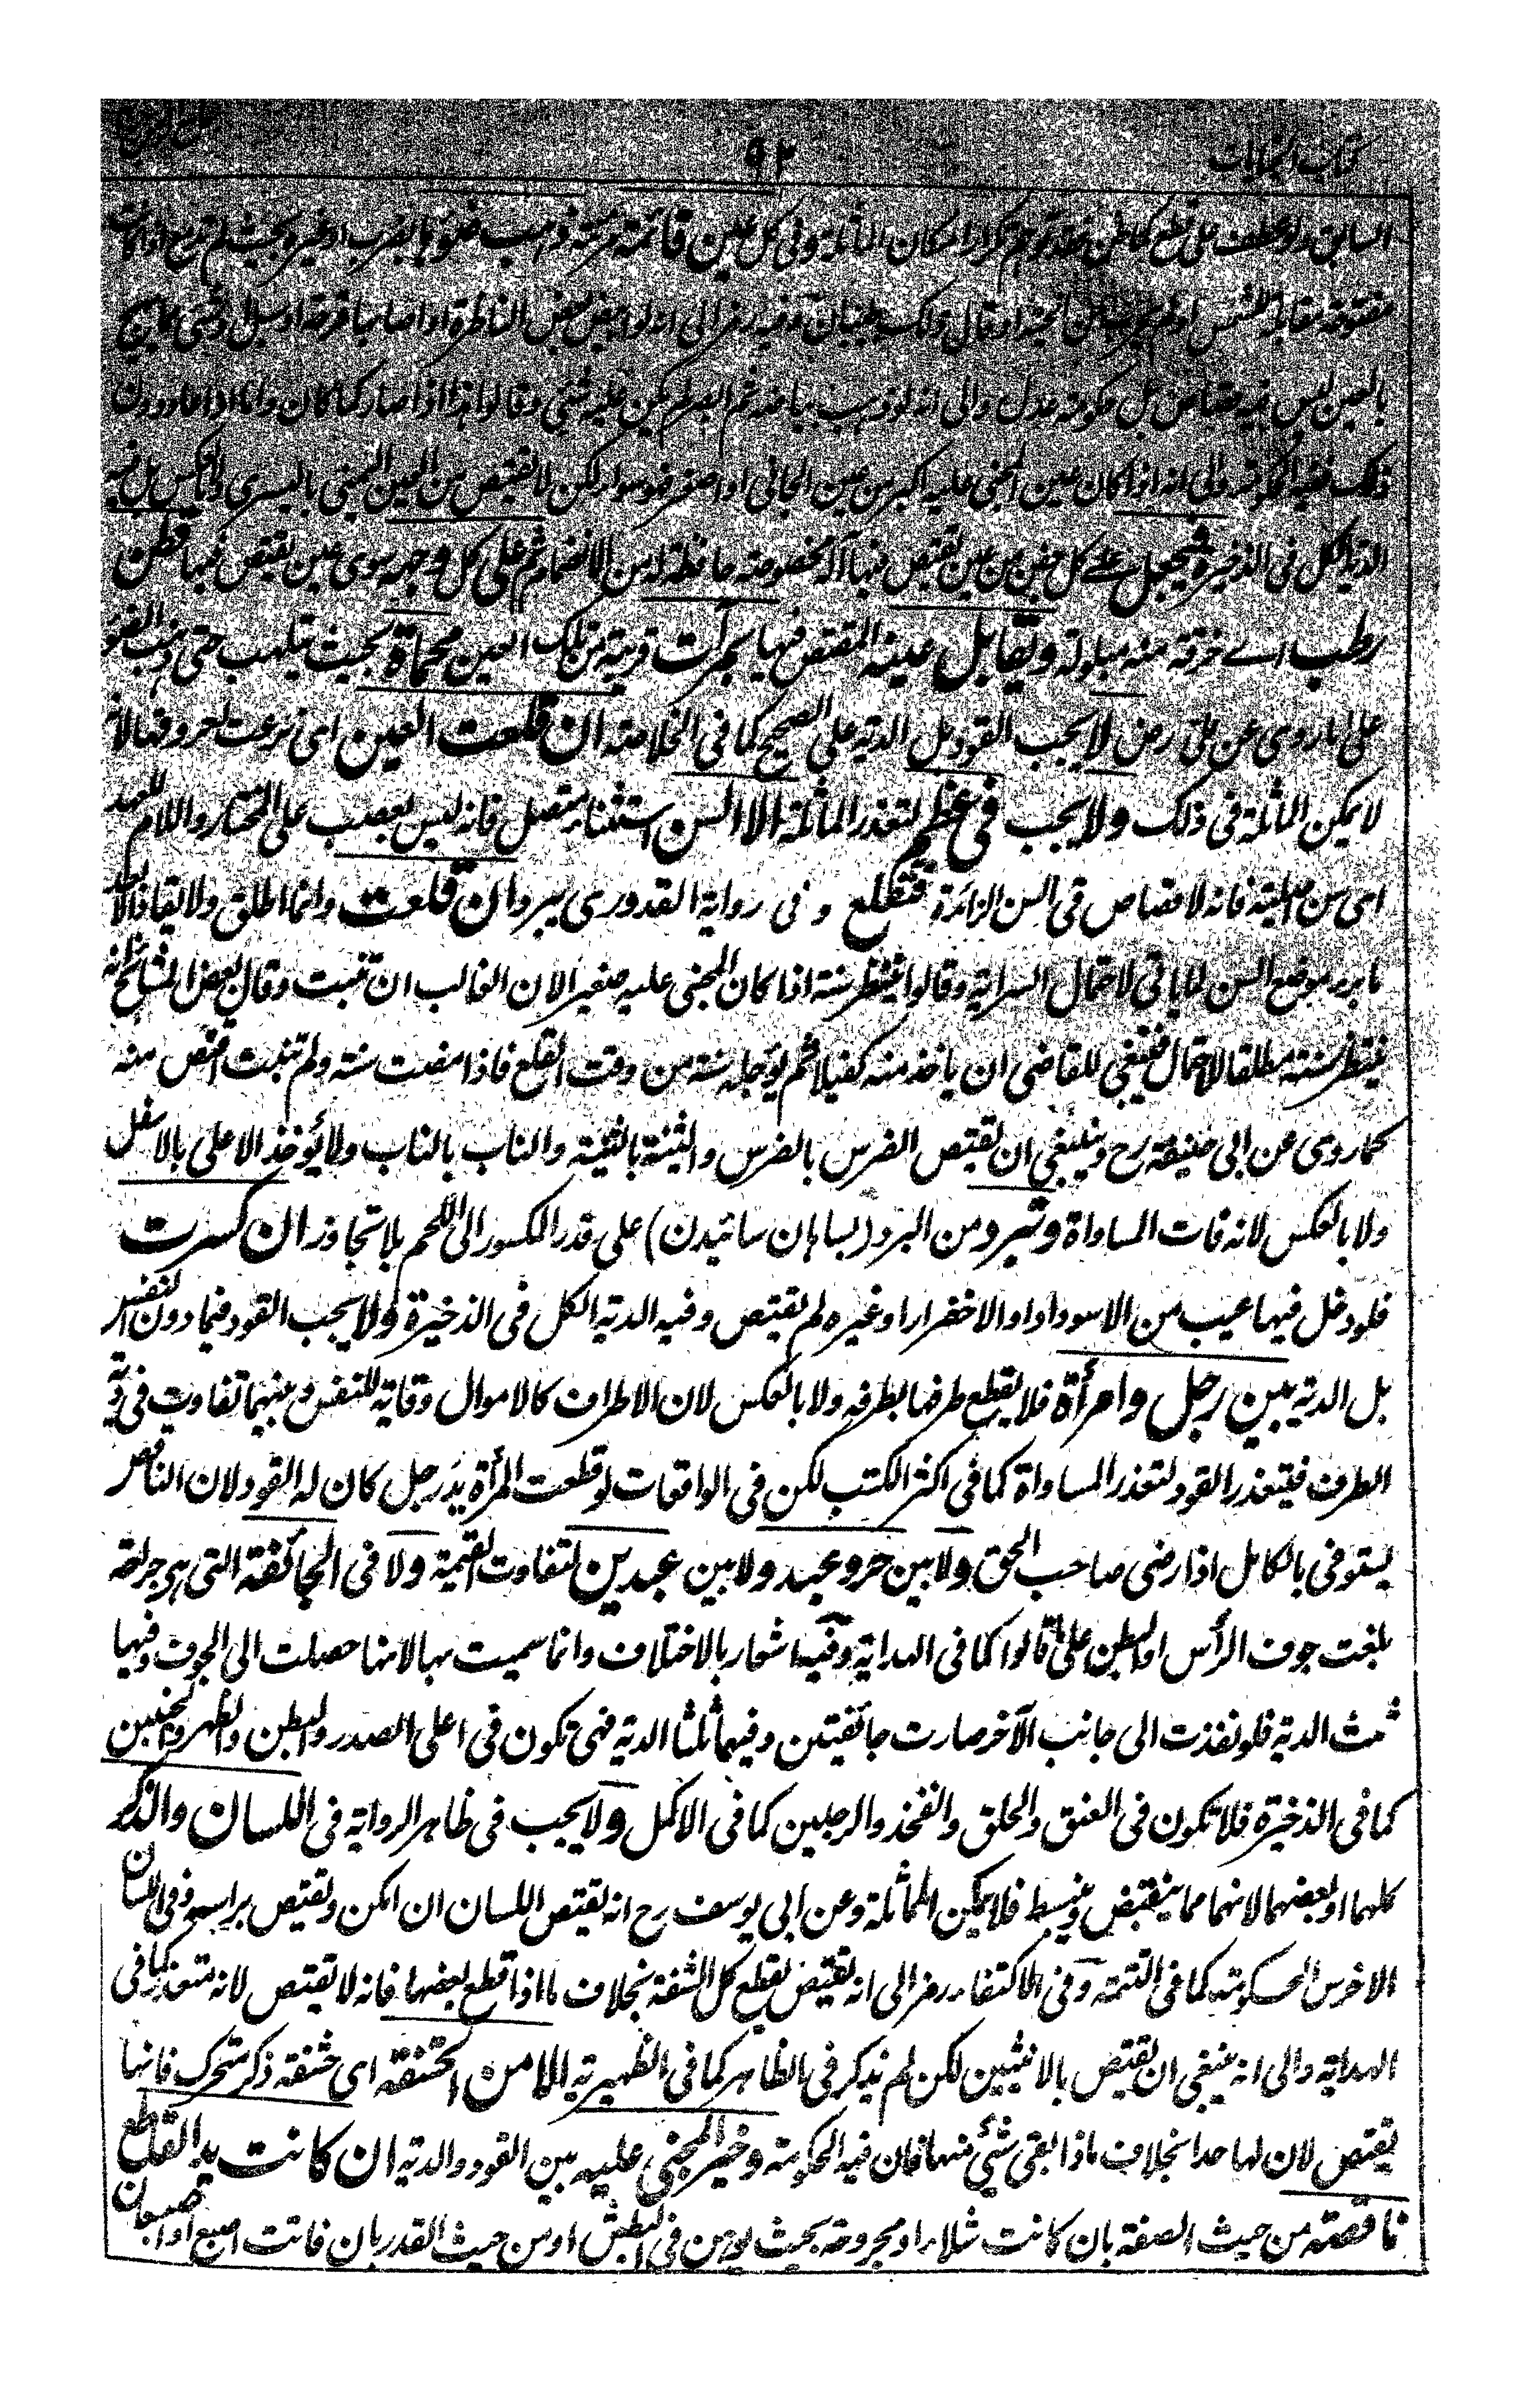 كتاب الجنايات ٥٩٢
السابق ولو عطف على قطع كما ظن لم تكرار لمكان المماثلة وفى كل عين قائمة ذهب ضوؤها بضرب او غيره بحيث لم
مفتوحة مقابلة الشمس او لم من الحية او قال ذلك طبيبان وفيه رمز الى انه لو ابيض بعض الناظرة او اصابها قرحة او سبل او شئ مما يهيج
بالعين ليس فيه قصاص بل حكومة عدل والى انه لو ذهب بياضه ثم ابصر لم يكن عليه شئ وقالوا هذا اذا صار كما كان واما اذا عاد دون
ذلك ففيه الحكومة والى انه اذا كان عين المجنى عليه اكبر من عين الجانى او اصغر فهو سواء لكن لا يقتص من العين اليمنى باليسرى ولا بالعكس بل فيه
الدية الكل فى الذخيرة فيجعل على كل جفن من عين يقتص فيها آلة مخصوصة حافظة له من الانضمام ثم على كل وجهه سوى عين يقتص فيها قطن
رطب اے خرقة منه مبلولة وتقابل عينه المقتص فيها بمرآت قريبة من تلك العين محماة بحيث تلهب حتى ذهب الضوء
على ما روى عن على رض لا يجب القود بل الدية على الصحيح كما فى الخلاصة ان قلعت العين اى نزعت لعروقها لانه
لا يمكن المماثلة فى ذلك ولا يجب فى عظم لتعذر المماثلة الا السن استثناء متصل فانه ليس بعصب على المختار واللام للعهد
اى سن اصلية فانه لا قصاص فى السن الزائدة فتقلع و فى رواية القدورى يبرد ان قلعت وانما اطلق ولا يقاد الا بعد
ما برء موضع السن لما ياتى لاحتمال السراية وقالوا ينتظر سنة اذا كان المجنى عليه صغيرا لان الغالب ان تنبت وقال بعض المشائخ انه
ينتظر سنة مطلقا لاحتمال فينبغى للقاضى ان ياخذ منه كفيلا ثم يؤجله سنة من وقت القلع فاذا مضت سنة ولم تنبت اقتص منه
كما روى عن ابى حنيفة رح وينبغى ان يقتص الضرس بالضرس والثنية بالثنية والناب بالناب ولا يؤخذ الاعلى بالاسفل
ولا بالعكس لانه فات المساواة وتبرد من البرد (بساہان سائيدن) على قدر المكسور الى اللحم بلا تجاوز ان كسرت
فلو دخل فيها عيب من الاسوداد او الاخضرار او غيره لم يقتص وفيه الدية الكل فى الذخيرة ولا يجب القود فيما دون النفس
بل الدية بين رجل وامرأة فلا يقطع طرفها بطرفه ولا بالعكس لان الاطراف كالاموال وقاية للنفس وبينهما تفاوت فى دية
الطرف فيتعذر القود لتعذر المساواة كما فى اكثر الكتب لكن فى الواقعات لو قطعت المرأة يد رجل كان له القود لان الناقص
يستوفى بالكامل اذا رضى صاحب الحق ولا بين حر وعبد ولا بين عبدين لتفاوت القيمة ولا فى الجائفة التى هى جراحة
بلغت جوف الرأس او البطن على ما قالوا كما فى الهداية وفيه اشعار بالاختلاف وانما سميت بها لانها حصلت الى الجوف وفيها
ثلث الدية فلو نفذت الى جانب الآخر صارت جائفتين وفيهما ثلثا الدية فهى تكون فى اعلى الصدر والبطن والظهر والجنبين
كما فى الذخيرة فلا تكون فى العنق والحلق والفخذ والرجلين كما فى الاكمل ولا يجب فى ظاهر الرواية فى اللسان والذكر
كلهما او بعضهما لانهما مما ينقبض وينبسط فلا يمكن المماثلة وعن ابى يوسف رح انه يقتص اللسان ان امكن ويقتص براسه وفى اللسان
الاخرس الحكومة كما فى التتمة وفى الاكتفاء رمز الى انه يقتص بقطع كل الشفة بخلاف ما اذا قطع بعضها فانه لا يقتص لانه متعذر كما فى
الهداية والى انه ينبغى ان يقتص بالانثيين لكن لم يذكر فى الظاهر كما فى الظهيرية الا من الحشفة اى حشفة ذكر متحرك فانها
يقتص لان لها حدا بخلاف ما اذا بقى شئ منها فان فيه الحكومة وخير المجنى عليه بين القود والدية ان كانت يد القاطع
ناقصة من حيث الصفة بان كانت شلاء او مجروحة بحيث يوهن فى البطش او من حيث القدر بان فاتت اصبع او اصبعان